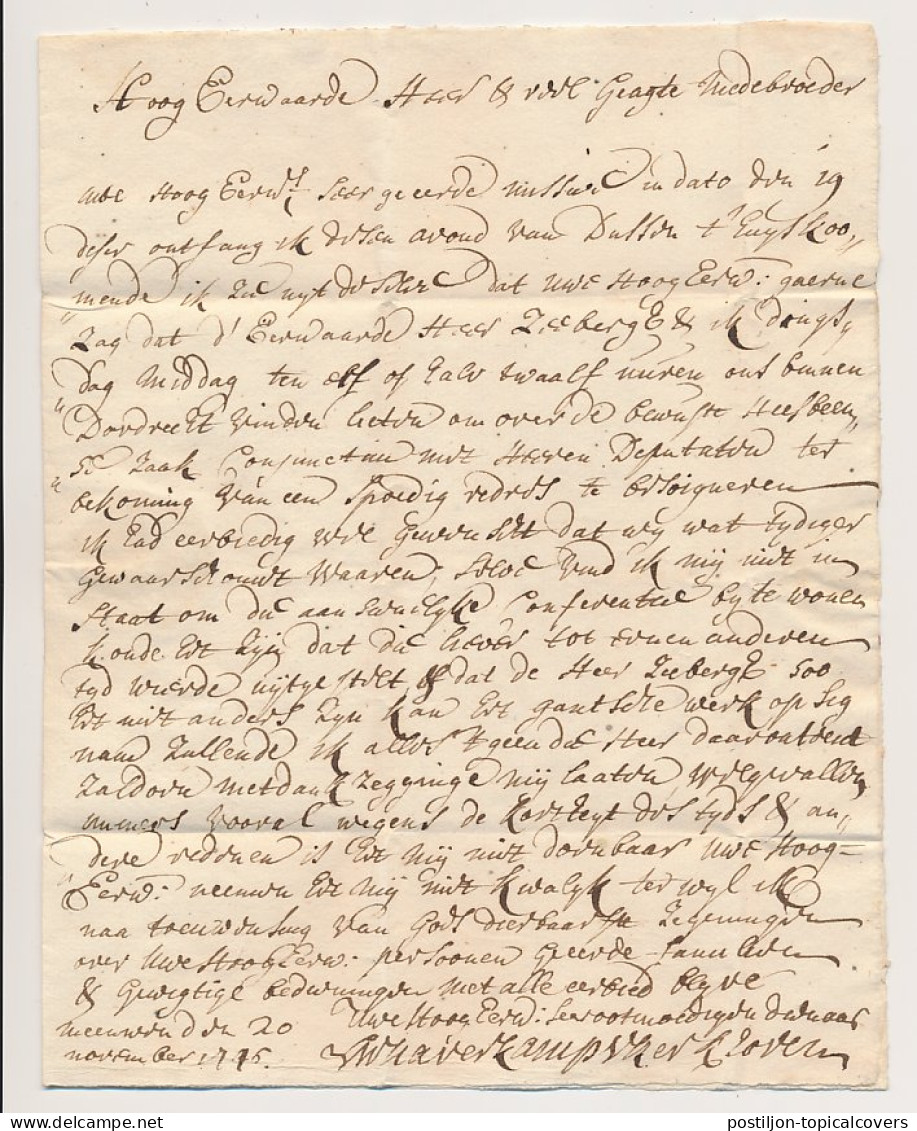 Hoog Eerwaarde Heer & veel Geagte Medebroeder
uwe Hoog Eerws seer geeerde missive in dato den 19
deser ontfang ik desen avond van Dussen t'huys koo„
„mende ik zie uyt deselve dat uwe Hoog Eerw: gaerne
zag dat d' Eerwaarde Heer Zeebergh & ik dings„
„dag middag ten elf of halv twaalf uuren ons binnen
Dordrecht vinden lieten om over de bewuste Heesbeen„
„se zaak conjunctim met Heeren Deputaten ter
bekoming van een spoedig redres te besoigneren
ik had eerbiedig wel gewenscht dat wy wat tydiger
gewaarschouwt waaren, vind ik mij niet in
staat om die aansienlyke Conferentie by te wonen
konde het zijn dat die liever tot eenen anderen
tyd wierde uijtgestelt & dat de Heer Zeebergh soo
het niet anders zyn kan het gantsche werk op sig
nam zullende ik alles 't geen die Heer daaromtrent
zal doen met dankzegginge mij laaten welgevallen
immers vooral wegens de kortheyt des tyds & an„
dere redenen is het mij niet doenbaar uwe Hoog-
„Eerw: neemen het mij niet kwalyk terwyl ik
naa toewensing van Gods dierbaarste zegeningen
over uwe Hoog Eerw: persoonen geeerde familien
& gewigtige bedieningen met alle eerbied blyve
Uwe Hoog Eerw: seer ootmoedigen dienaar
meeuwen den 20
november 1745. Haverkamp v kerkhoven
postiljon-topicalcovers